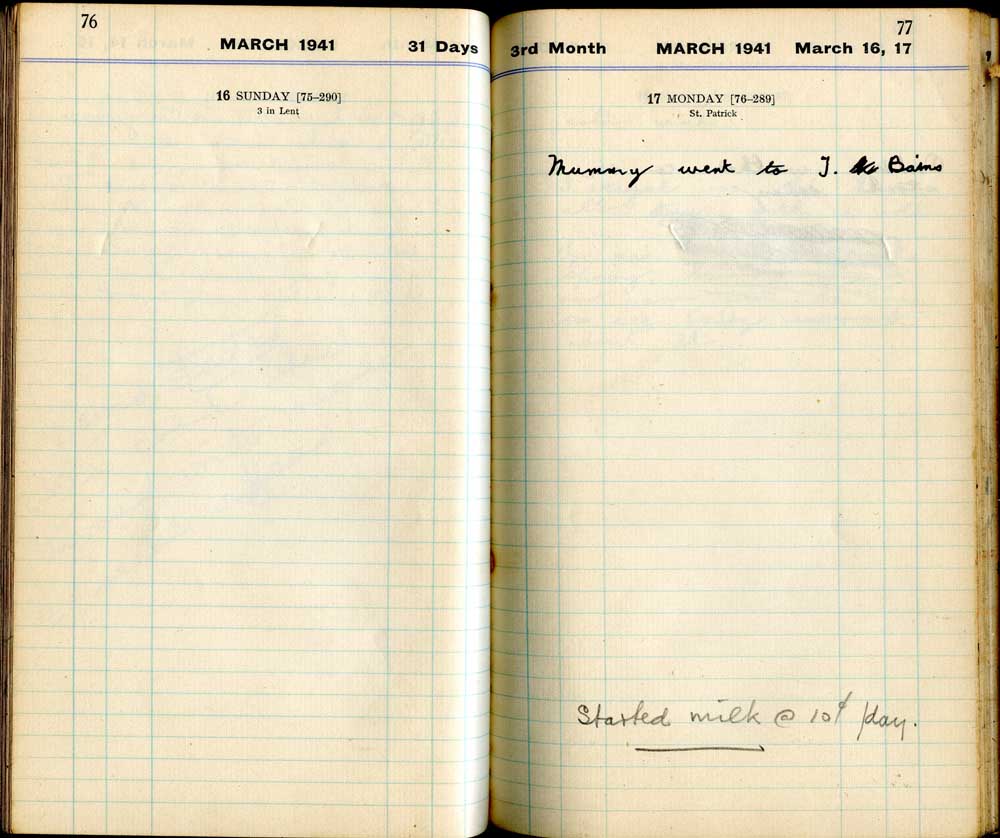 76
MARCH 1941 31 Days
16 SUNDAY [75–290]
3 in Lent
77
3rd Month MARCH 1941 March 16, 17
17 MONDAY [76–289]
St. Patrick
Mummy went to J. Bains
Started milk @ 10¢ /day.